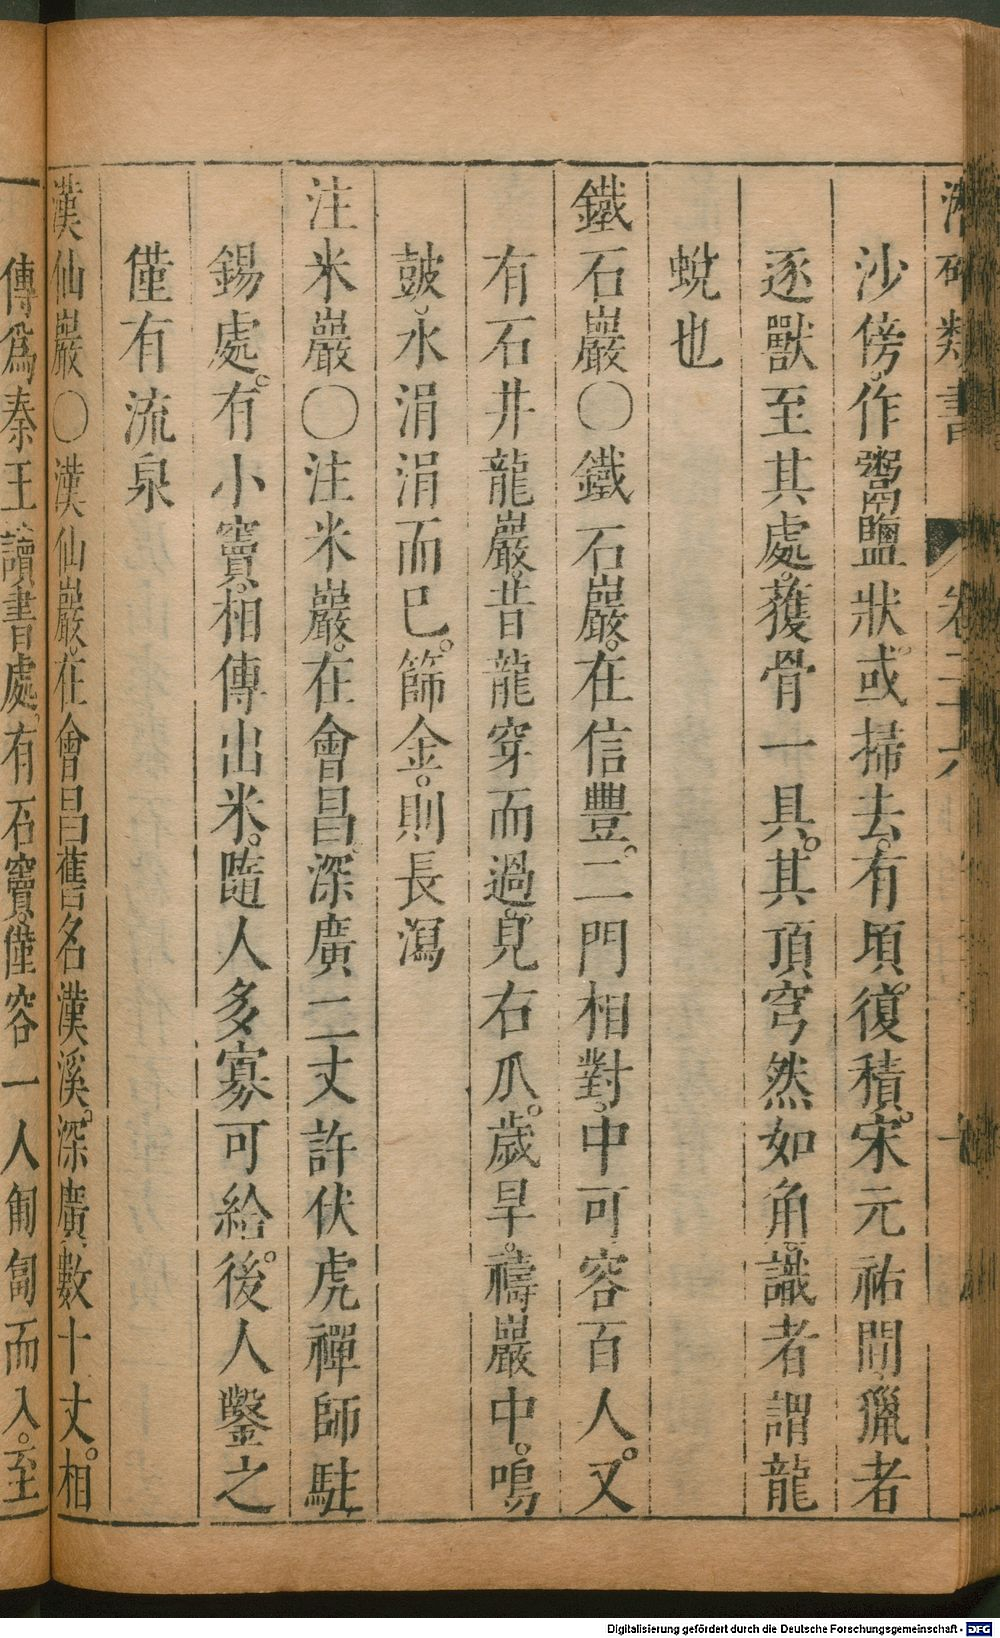 潛確類書 卷二十六
沙傍。作鬻鹽狀。或掃去。有頃。復積。宋元祐間獵者
逐獸至其處。獲骨一具。其頂穹然如角。識者謂龍
蛻也
鐵石巖〇鐵石巖。在信豐。二門相對。中可容百人。又
有石井龍巖。昔龍穿而過。見右爪。歲旱。禱巖中。鳴
鼓。水涓涓而已。篩金。則長瀉
注米巖〇注米巖。在會昌深廣二丈許伏虎禪師駐
錫處。有小竇。相傳出米。隨人多寡可給。後人鑿之
僅有流泉
漢仙巖〇漢仙巖。在會昌舊名漢溪。深廣數十丈。相
傳爲秦王讀書處。有石竇。僅容一人匍匐而入。至
Digitalisierung gefördert durch die Deutsche Forschungsgemeinschaft - DFG